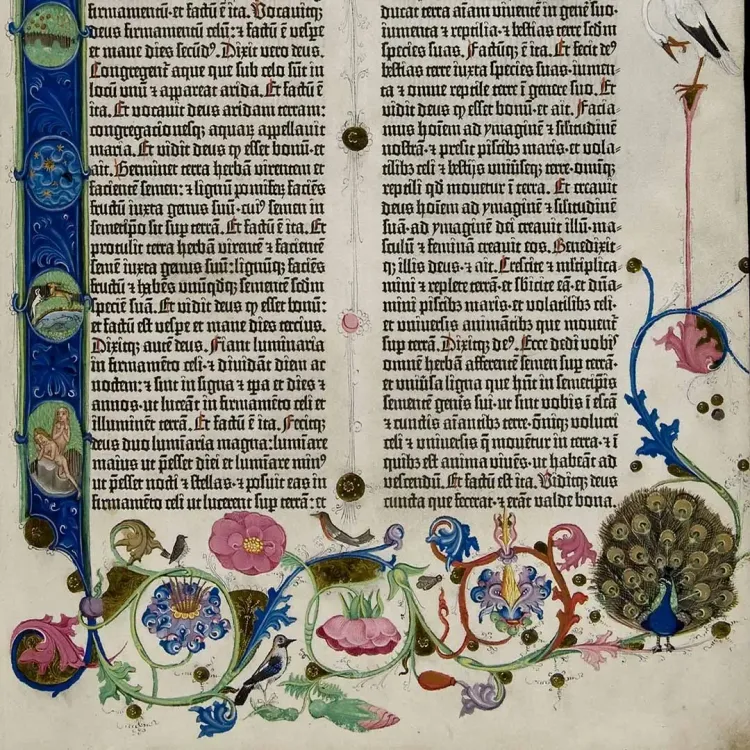 firmamentũ·et factũ ẽ ita. Vocauitqꝫ
deus firmamentũ celũ:⁊ factũ ẽ vespe
et mane dies secũdꝰ. Dixit vero deus.
Congregent̃ aque que sub celo sũt in
locũ vnũ ⁊ appareat arida. Et factũ ẽ
ita. Et vocauit deus aridam terram:
congregacionesqꝫ aquaꝝ appellauit
maria. Et vidit deus ꝙ esset bonũ·et
ait. Germinet terra herbã virentem et
facientẽ semen:⁊ lignũ pomifeꝝ faciẽs
fructũ iuxta genus suũ·cuiꝰ semen in
semetip̃o sit suꝑ terrã. Et factũ ẽ ita. Et
protulit terra herbã virentẽ ⁊ facientẽ
semẽ iuxta genus suũ:lignũqꝫ faciẽs
fructũ ⁊ habẽs vnũqdqꝫ sementẽ scd̃m
speciẽ suã. Et vidit deus ꝙ esset bonũ:
et factũ est vespe et mane dies tercius.
Dixitqꝫ autẽ deus. Fiant luminaria
in firmamẽto celi·⁊ diuidãt diem ac
noctem:⁊ sint in signa ⁊ tp̃a et dies ⁊
annos·ut luceãt in firmamẽto celi et
illuminẽt terrã. Et factũ ẽ ita. Fecitqꝫ
deus duo lumĩaria magna:lumĩare
maius ut p̃esset diei et lumĩare minꝰ
ut p̃esset nocti ⁊ stellas·⁊ posuit eas in
firmamẽto celi ut lucerent suꝑ terrã:et
ducat terra aĩam viuentẽ in genẽ suo·
iumenta ⁊ reptilia·⁊ bestias terre scd̃m
species suas. Factũqꝫ ẽ ita. Et fecit deꝰ
bestias terre iuxta species suas·iumen-
ta ⁊ omne reptile terre ĩ genere suo. Et
vidit deus ꝙ esset bonũ·et ait. Facia-
mus hoĩem ad ymaginẽ ⁊ similitudinẽ
nostrã·⁊ presit piscibꝫ maris·et vola-
tilibꝫ celi ⁊ bestijs vniũseqꝫ terre·omĩqꝫ
reptili qd̃ mouetur ĩ terra. Et creauit
deus hoĩem ad ymaginẽ ⁊ similitudinẽ
suã·ad ymaginẽ dei creauit illũ·ma-
sculũ ⁊ feminã creauit eos. Benedixit-
qꝫ illis deus·⁊ ait. Crescite ⁊ multiplica-
mini ⁊ replete terrã·et sbicite eã·et dña-
mini piscibꝫ maris·et volatilibꝫ celi·
et vniuersis animãtibꝫ que mouent̃
suꝑ terrã. Dixitqꝫ deꝰ. Ecce dedi vobis
omnẽ herbã afferentẽ semen suꝑ terrã·
et vniũsa ligna que hñt in semetip̃is
sementẽ genis sui·ut sint vobis ĩ escã
⁊ cunctis aĩantibꝫ terre·omĩqꝫ volucri
celi ⁊ vniuersis q̃ mouẽtur in terra·⁊ ĩ
quibꝫ est anima viuẽs·ut habeãt ad
vescendũ. Et factũ est ita. Viditqꝫ deus
cuncta que fecerat·⁊ erãt valde bona.